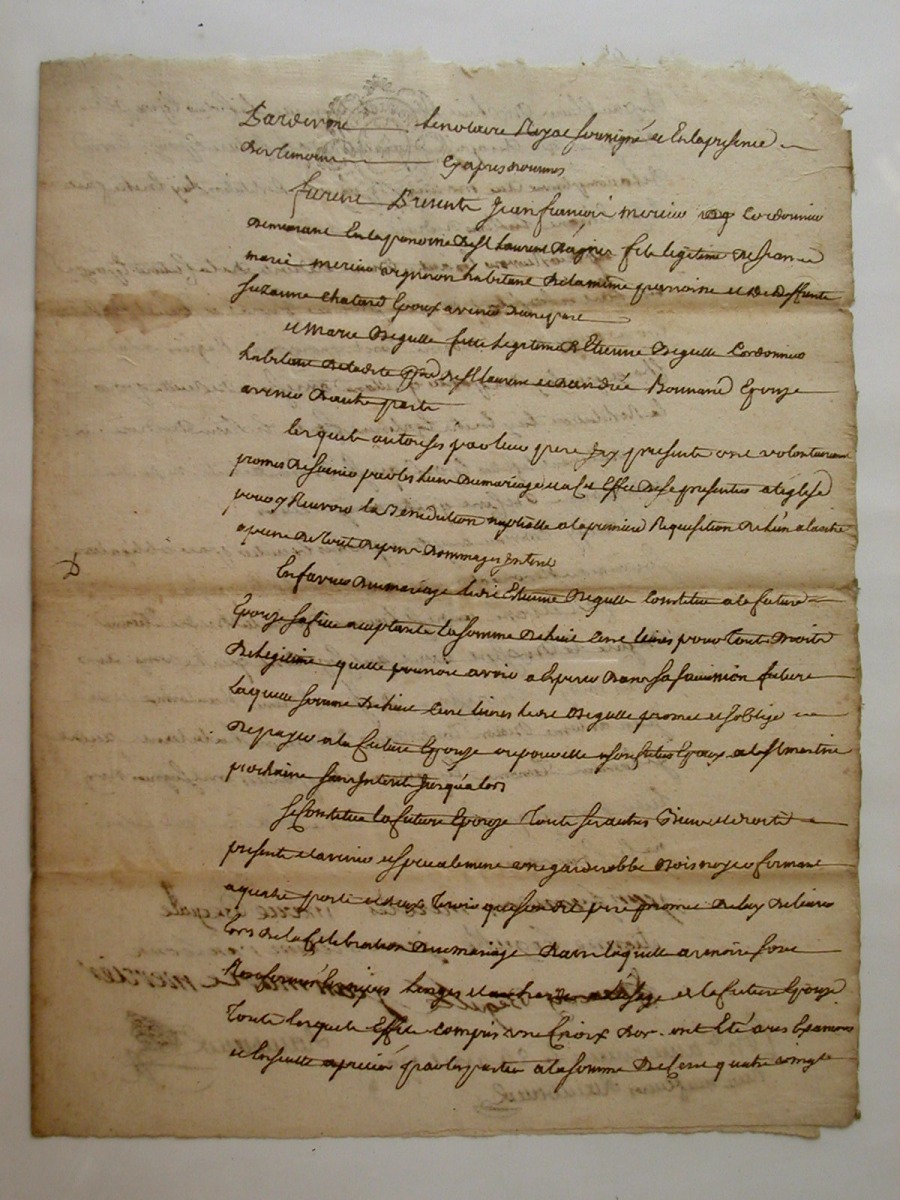 Pardevant le notaire Royal soussigné et En la presence
Des temoins cy apres nommés
furent Presents Jean francois mercier cordonnier
Demeurant En la parroisse De St Laurent Dagny fils legitime De Jean
marie mercier vigneron habitant De la meme parroisse et De Deffunte
Suzanne Chatard Epoux avenir Dune part
et Marie Seguelle fille legitime D'Etienne Seguelle Cordonnier
habitant De ladite De St laurent et D'andrée Bonnand Epouze
avenir D'autre part
lesquels autorisés par leur pere presents ont volontairement
promis De s'unir par les lien Du mariage et a cet Effet De se presenter a leglise
pour y Recevoir la Benediction nuptialle a la premiere Requisition De lun a lautre
a peine De tout Depens Dommages Interet
En faveur Du mariage ledit Etienne Seguelle Constitue a la future
Epouze sa fille acceptante la somme De huit Cent livres pour tout Droits
De legitime quelle pourroit avoir a Esperer Dans sa succession future
laquelle somme De huit Cent livres ledit Seguelle promet et s'oblige
De payer a la future Epouze a la St martin
prochaine sans Interet Jusqu'alors
Se Constitue la future Epouze Toute ses autres Biens et droits
present et avenir et specialement une garderobbe Bois noyer fermant
a quatre porte et deux Tiroir que son dit pere promet De luy Delivrer
lors De la Celebration Du mariage Dans laquelle armoire sont
linges et autres a lusage de la future Epouze
Toute lesquels Effets compris une Croix D'or ont Eté a vus Examinés
et Ensuitte apreciés par les parties a la somme De Cent quatre vingts